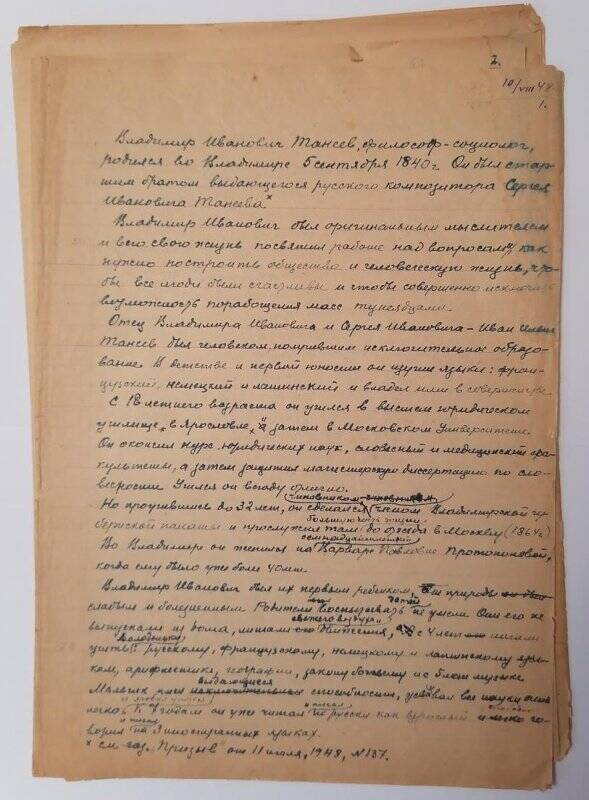 2.
10/VIII 48
1.
Владимир Иванович Танеев, философ-социолог,
родился во Владимире 5 сентября 1840 г. Он был стар-
шим братом выдающегося русского композитора Сергея
Ивановича Танеева ×
Владимир Иванович был оригинальным мыслителем
и всю свою жизнь посвятил работе над вопросами, как
нужно построить общество и человеческую жизнь, что-
бы все люди были счастливы и чтобы совершенно исключить
возможность порабощения масс тунеядцами.
Отец Владимира Ивановича и Сергея Ивановича - Иван Ильич
Танеев был человеком, получившим исключительное образо-
вание. В детстве и первой юности он изучил языки: фран-
цузский, немецкий и латинский и владел ими в совершенстве
С 18 летнего возраста он учился в высшем юридическом
училище в Ярославле, а затем в Московском Университете.
Он окончил курс юридических наук, словесный и медицинский фа-
культеты, а затем защитил магистерскую диссертацию по сло-
весности. Учился он всюду отлично.
чиновником
Но проучившись до 32 лет, он сделался членом Владимирской гу-
большую часть жизни
бернской палаты и прослужил там до отъезда в Москву (1864 г.)
семнадцатилетней
Во Владимире он женился на Варваре Павловне Протопоповой,
когда ему было уже более 40 лет.
Владимир Иванович был их первым ребенком, от природы
слабым и болезненным. Родители воспитывать не умели. Они его не
свежего воздуха
выпускали из дома, лишали движения, а с 4 лет начали
Володеньку
учить русскому, французскому, немецкому и латинскому язы-
кам, арифметике, географии, закону божьему и музыке
выдающиеся
Мальчик имел способности, усваивал все науки очень
легко К 7 годам он уже читал и писал по русски как взрослый и легко го-
и писал
ворил на 3 иностранных языках.
× см. газ. "Призыв" от 11 июля, 1948, № 137.